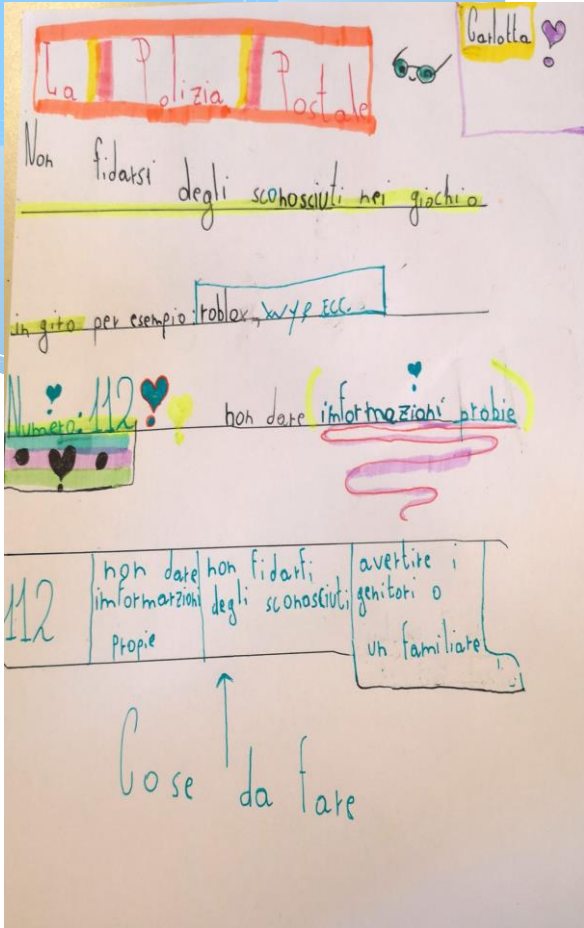 La Polizia Postale
Carlotta
Non fidarsi degli sconosciuti nei giochi o
in giro per esempio: roblox, wyp ECC...
Numero: 112
non dare informazioni probie
112
non dare
imformarzioni
propie
non fidarti
degli sconosciuti
avertire i
genitori o
un familiare
Cose da fare